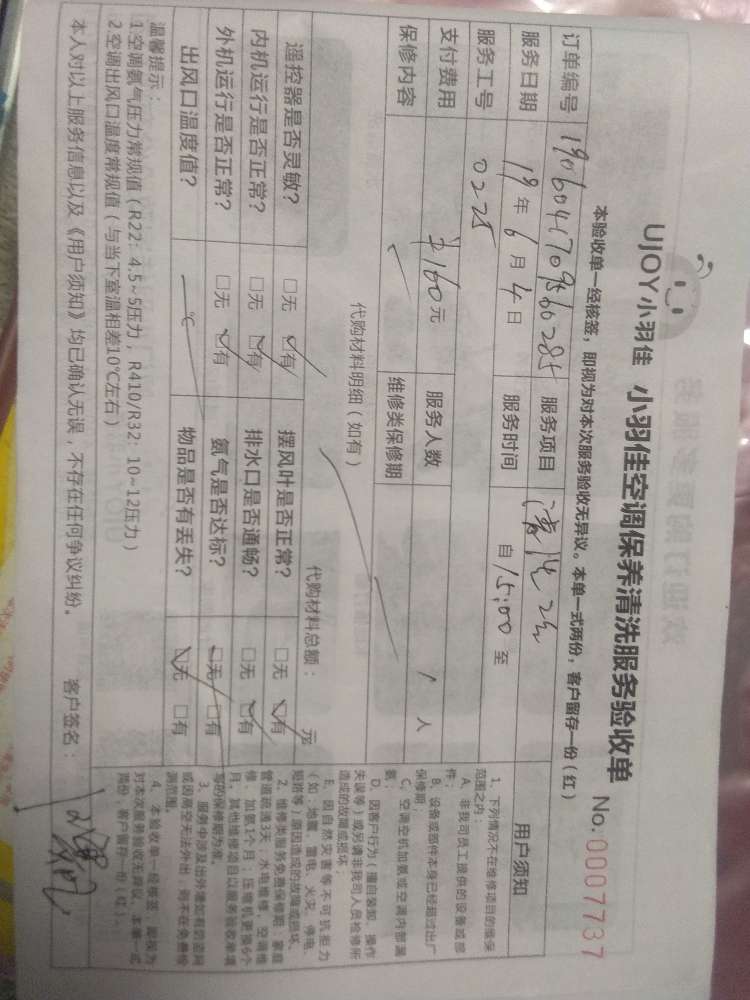 UJOY小羽佳 小羽佳空调保养清洗服务验收单 No.0007737
本验收单一经核签，即视为对本次服务验收无异议。本单一式两份，客户留存一份（红）
订单编号 19060417095660285 服务项目 清洗2台
服务日期 19年6月4日 服务时间 自15:00至
服务工号 0225
支付费用 ¥160元 服务人数 1人
保修内容 维修类保修期
代购材料明细（如有） 代购材料总额： 元
遥控器是否灵敏？ □无 □有 摆风叶是否正常？ □无 □有
内机运行是否正常？ □无 □有 排水口是否通畅？ □无 □有
外机运行是否正常？ □无 □有 氨气是否达标？ □无 □有
出风口温度值？ ℃ 物品是否有丢失？ □无 □有
温馨提示：
1.空调氨气压力常规值（R22：4.5~5压力，R410/R32：10~12压力）
2.空调出风口温度常规值（与当下室温相差10℃左右）
本人对以上服务信息以及《用户须知》均已确认无误，不存在任何争议纠纷。 客户签名：
用户须知
1、下列情况不在维修项目的维保
范围之内：
A、非我司员工提供的设备或部
件；
B、设备或部件本身已经超过出厂
保修期；
C、空调空机加氨或空调内部漏
氨；
D、因客户行为（擅自装卸、操作
失误等）或另请非我司人员检修所
造成的故障或损坏；
E、因自然灾害等不可抗拒力
（如：地震、雷电、火灾、停电、
短路等）原因造成的故障或损坏。
2、维修类服务免费保修期：家庭
管道疏通3天，水电维修、空调维
修、加氨1个月；压缩机更换6个
月，其他维修项目以服务验收单填
写的保修期为准。
3、服务中涉及出外墙如遇防盗网
或因高空无法外出，则不在免费检
测范围。
4、本验收单一经核签，即视为
对本次服务验收无异议，本单一式
两份，客户留存一份（红）。